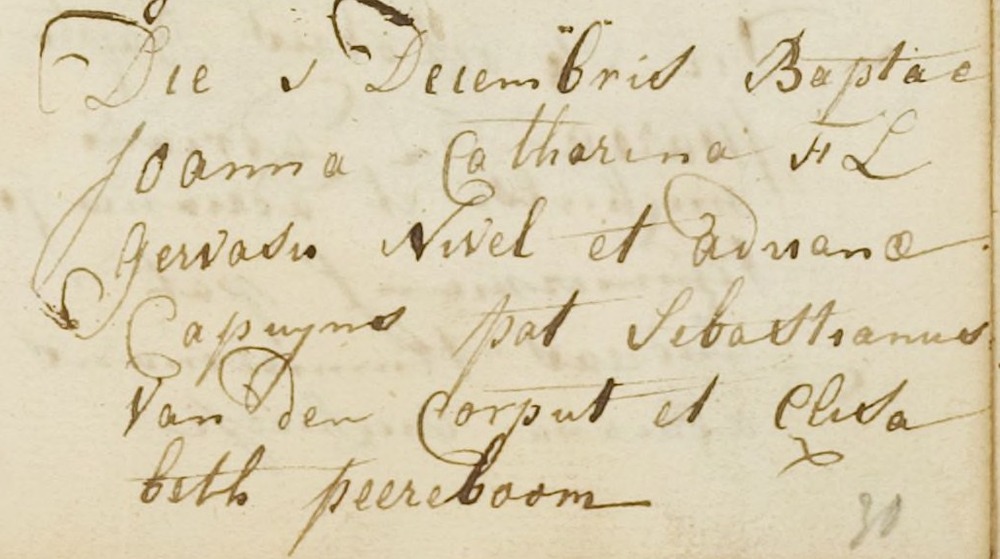 Die s Decembris Baptae
Joanna Catharina FL
gervasii Nivel et adrianæ
Capuyns pat Sebastianus
Van den Corput et Elisa
beth peereboom
30